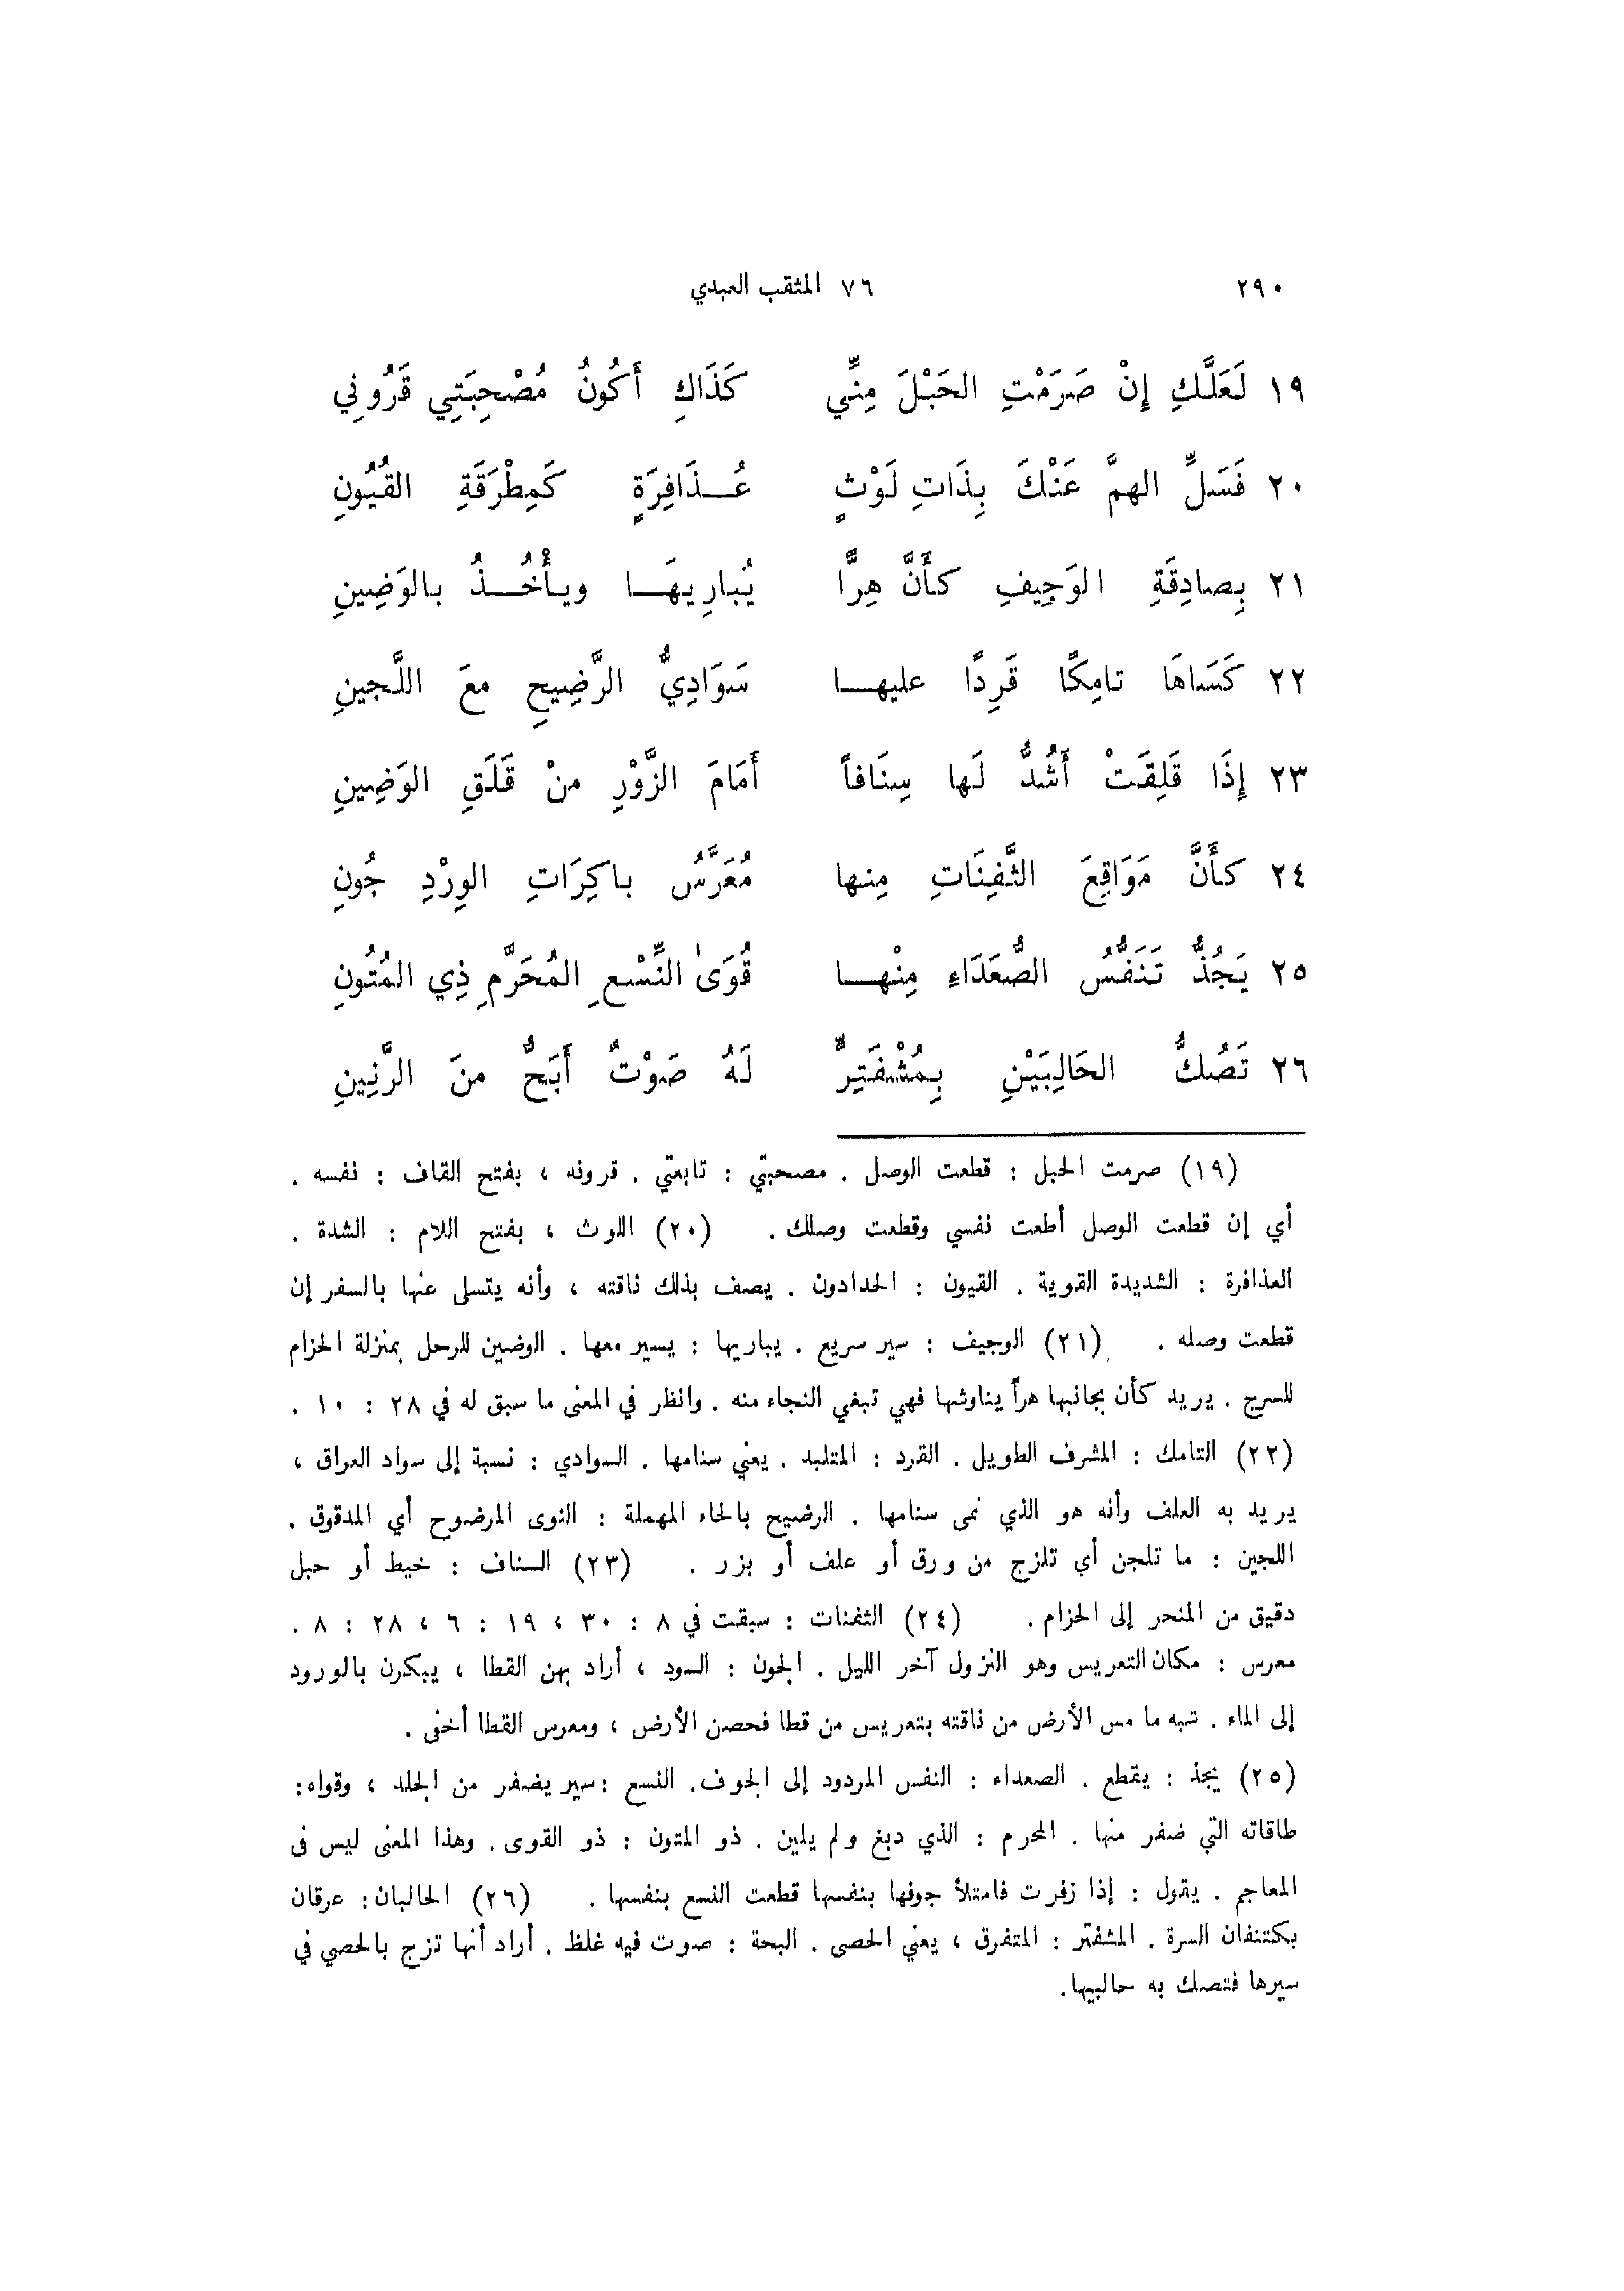 ٢٩٠ ٧٦ المثقب العبدي
١٩ لَعَلَّكِ إِنْ صَرَمْتِ الحَبْلَ مِنِّي كَذَاكِ أَكُونُ مُصْحِبَتِي قَرُونِي
٢٠ فَسَلِّ الهمَّ عَنْكَ بِذَاتِ لَوْثٍ عُـذَافِرَةٍ كَمِطْرَقَةِ القُيُونِ
٢١ بِصادِقَةِ الوَجِيفِ كأَنَّ هِرًّا يُبارِيهَـا ويـأْخُـذُ بالوَضِينِ
٢٢ كَسَاهَا تامِكًا قَرِدًا عليهـا سَوَادِيُّ الرَّضِيحِ معَ اللَّجينِ
٢٣ إِذَا قَلِقَتْ أَشُدُّ لَها سِنَافاً أَمَامَ الزَّوْرِ منْ قَلَقِ الوَضِينِ
٢٤ كأَنَّ مَوَاقِعَ الثَّفِنَاتِ مِنها مُعَرَّسُ باكِرَاتِ الوِرْدِ جُونِ
٢٥ يَجُذُّ تَنَفُّسُ الصُّعَدَاءِ مِنْهـا قُوَىٰ النِّسْعِ المُحَرَّمِ ذِي المُتُونِ
٢٦ تَصُكُّ الحَالِبَيْنِ بِمُشْفَتِرٍّ لَهُ صَوْتٌ أَبَحُّ منَ الرَّنِينِ
(١٩) صرمت الحبل : قطعت الوصل . مصحبتي : تابعتي . قرونه ، بفتح القاف : نفسه .
أي إن قطعت الوصل أطعت نفسي وقطعت وصلك . (٢٠) اللوث ، بفتح اللام : الشدة .
العذافرة : الشديدة القوية . القيون : الحدادون . يصف بذلك ناقته ، وأنه يتسلى عنها بالسفر إن
قطعت وصله . (٢١) الوجيف : سير سريع . يباريها : يسير معها . الوضين للرحل بمنزلة الحزام
للسرج . يريد كأن بجانبها هراً يناوشها فهي تبغي النجاء منه . وانظر في المعنى ما سبق له في ٢٨ : ١٠ .
(٢٢) التامك : المشرف الطويل . القرد : المتلبد . يعني سنامها . السوادي : نسبة إلى سواد العراق ،
يريد به العلف وأنه هو الذي نمى سنامها . الرضيح بالحاء المهملة : النوى المرضوح أي المدقوق .
اللجين : ما تلجن أي تلزج من ورق أو علف أو بزر . (٢٣) السناف : خيط أو حبل
دقيق من المنحر إلى الحزام . (٢٤) الثفنات : سبقت في ٨ : ٣٠ ، ١٩ : ٦ ، ٢٨ : ٨ .
معرس : مكان التعريس وهو النزول آخر الليل . الجون : السود ، أراد بهن القطا ، يبكرن بالورود
إلى الماء . شبه ما مس الأرض من ناقته بتعريس من قطا فحصن الأرض ، ومعرس القطا أخفى .
(٢٥) يجذ : يقطع . الصعداء : النفس المردود إلى الجوف. النسع :سير يضفر من الجلد ، وقواه:
طاقاته التي ضفر منها . المحرم : الذي دبغ ولم يلين . ذو المتون : ذو القوى . وهذا المعنى ليس فى
المعاجم . يقول : إذا زفرت فامتلأ جوفها بنفسها قطعت النسع بنفسها . (٢٦) الحالبان: عرقان
يكتنفان السرة . المشفتر : المتفرق ، يعني الحصى . البحة : صوت فيه غلظ . أراد أنها تزج بالحصي في
سيرها فتصك به حالبيها.